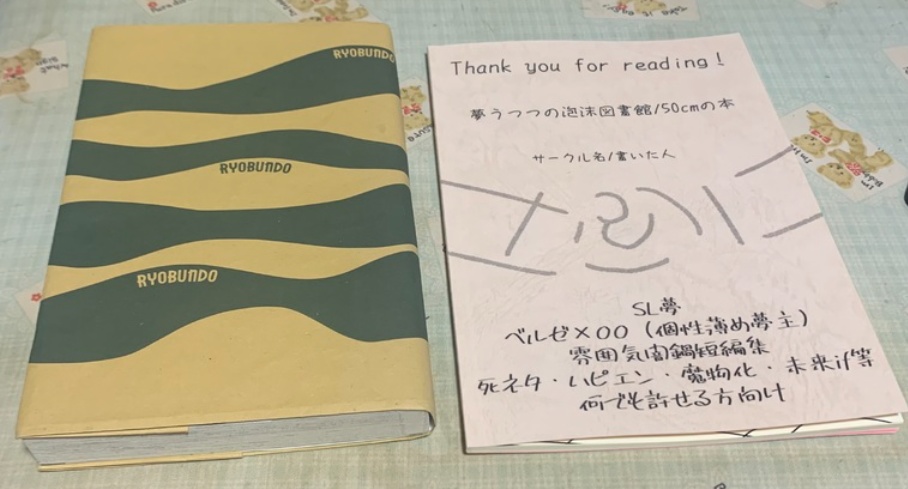 RYOBUNDO
RYOBUNDO
RYOBUNDO
Thank you for reading!
夢うつつの泡沫図書館/50cmの本
サークル名/書いた人
SL夢
ベルゼ×〇〇(個性薄め夢主)
雰囲気闇鍋短編集
死ネタ・ハピエン・魔物化・未来if等
何でも許せる方向け